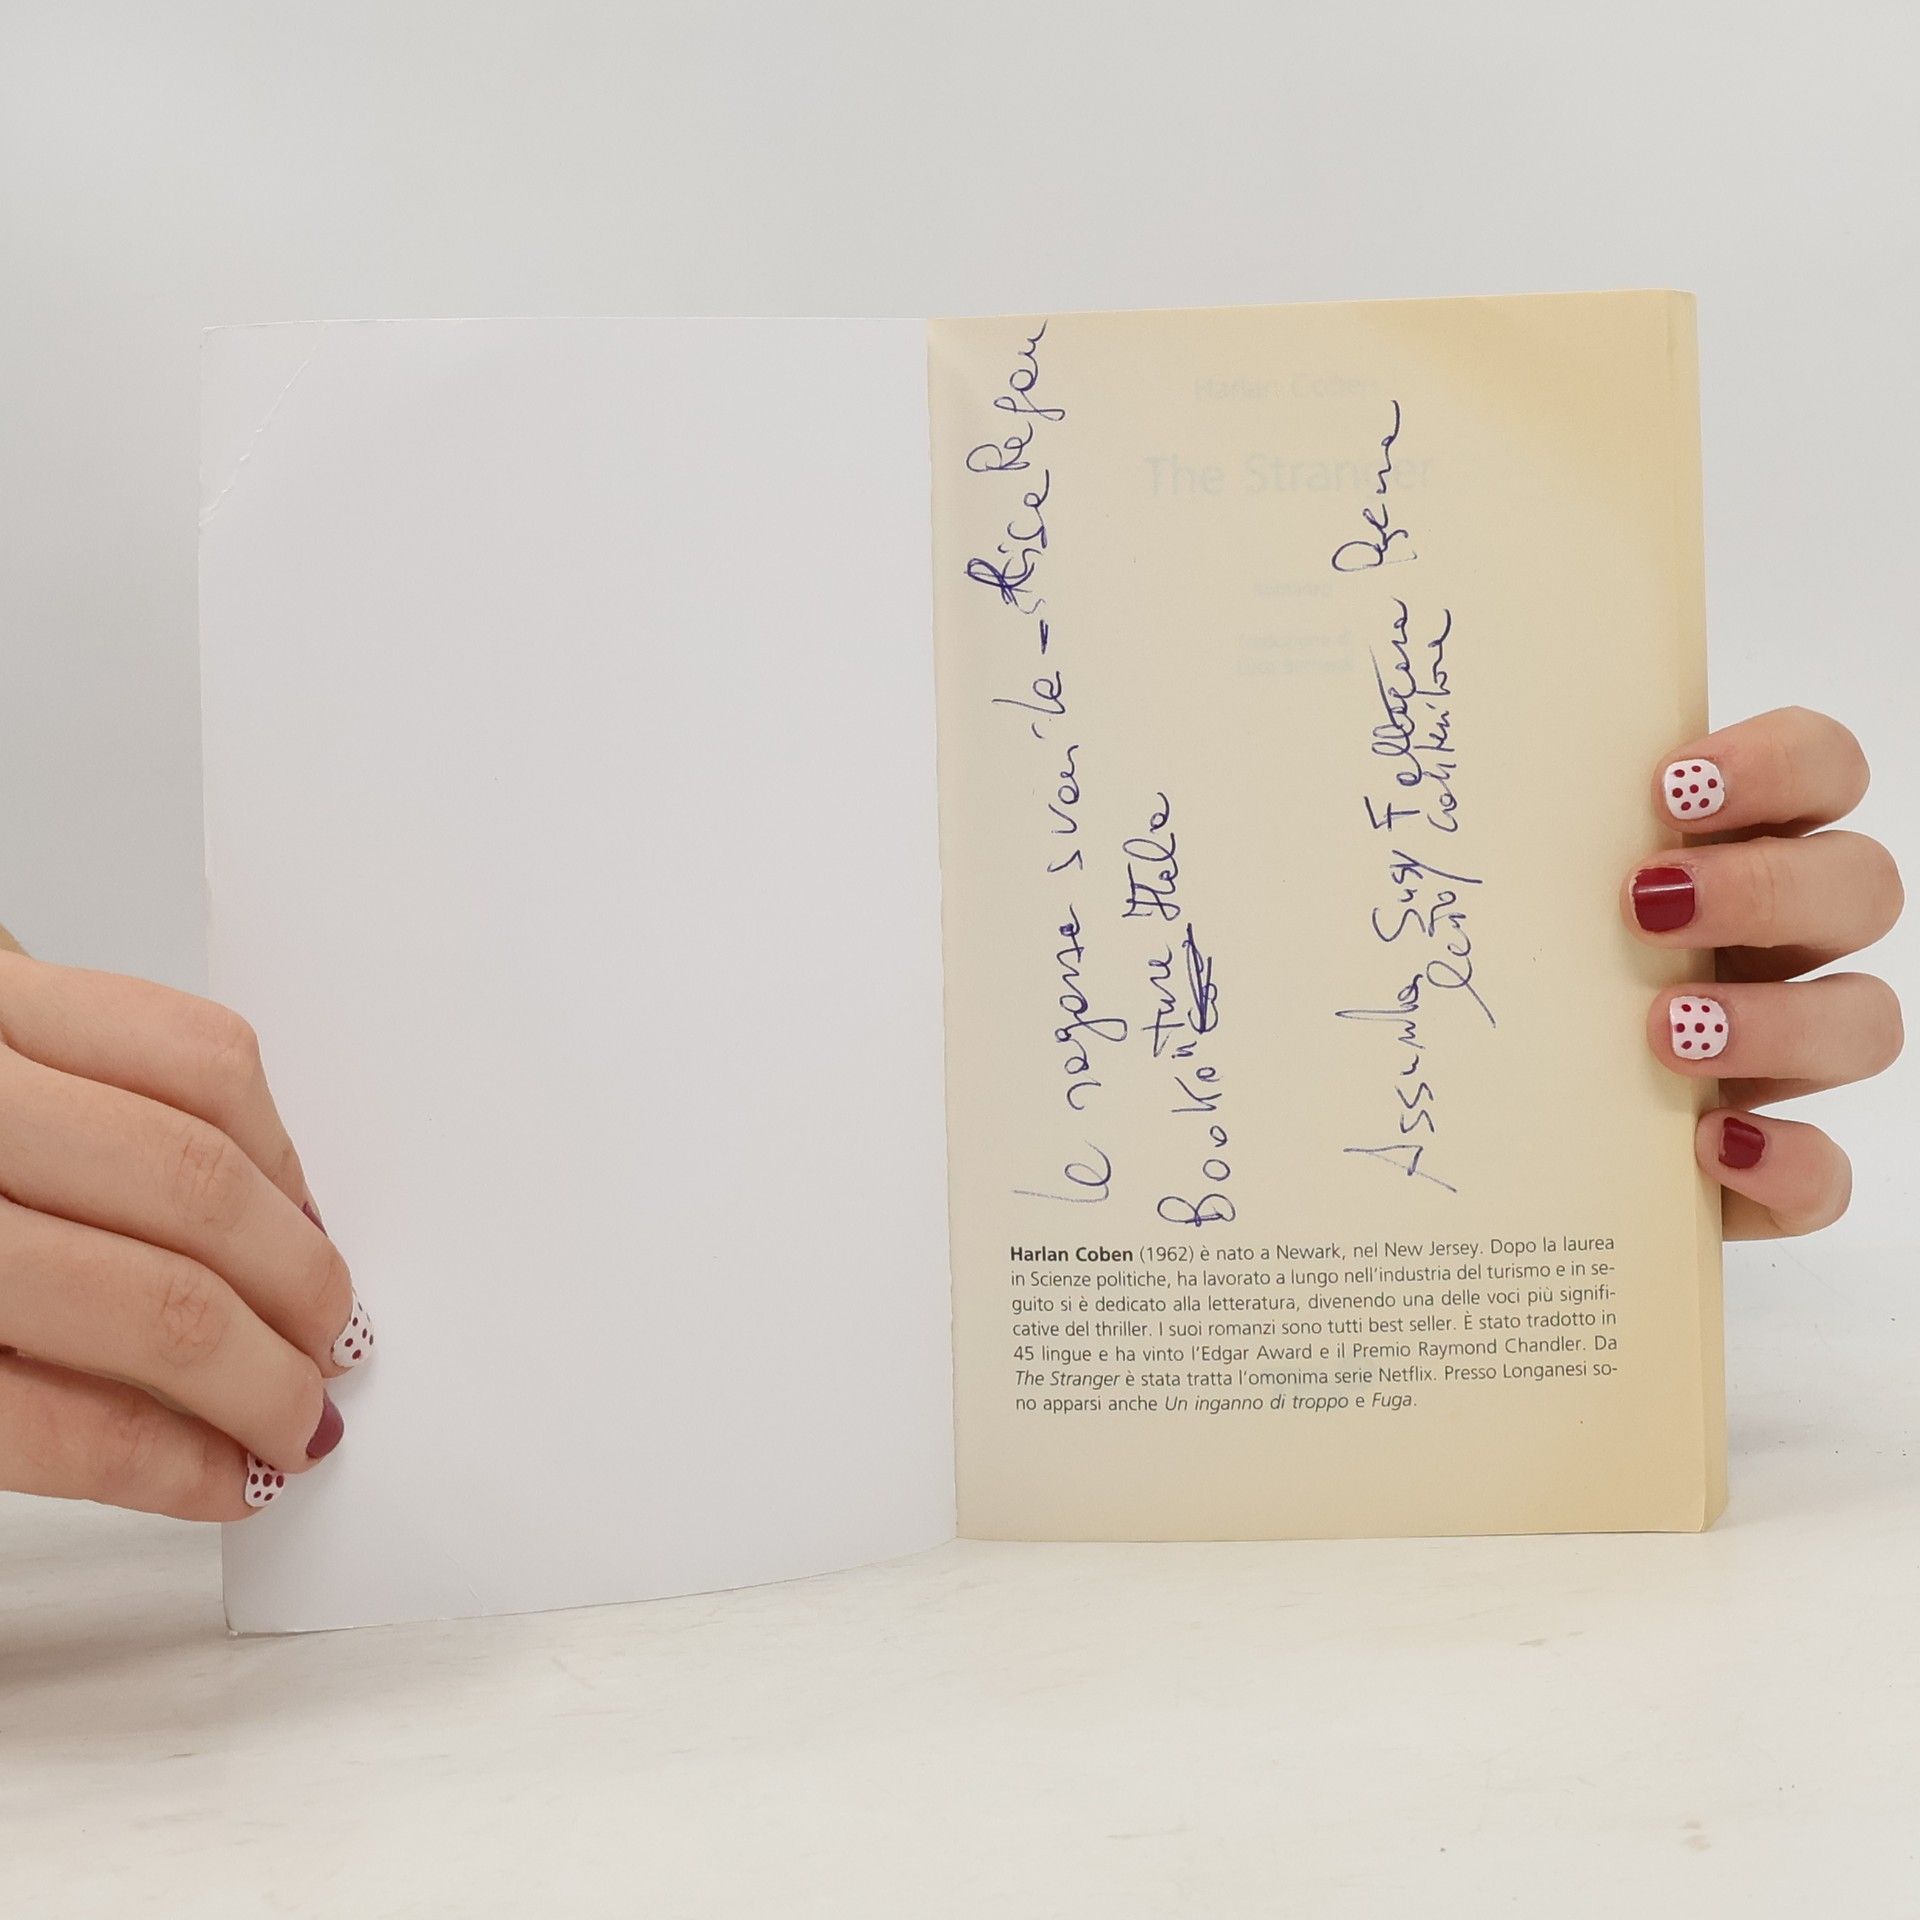 Le ragazze svanite - Lisa Regan
Bookouture Italia
Assunta Susy
Harlan Coben
The Stranger
Romanzo
Traduzione di
Harlan Coben (1962) è nato a Newark, nel New Jersey. Dopo la laurea
in Scienze politiche, ha lavorato a lungo nell'industria del turismo e in se-
guito si è dedicato alla letteratura, divenendo una delle voci più signifi-
cative del thriller. I suoi romanzi sono tutti best seller. È stato tradotto in
45 lingue e ha vinto l'Edgar Award e il Premio Raymond Chandler. Da
The Stranger è stata tratta l'omonima serie Netflix. Presso Longanesi so-
no apparsi anche Un inganno di troppo e Fuga.